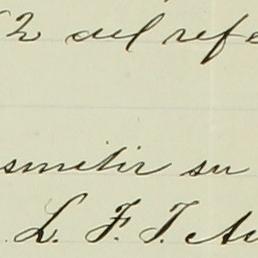 2 del refe
smitir su
L. F. T. Au